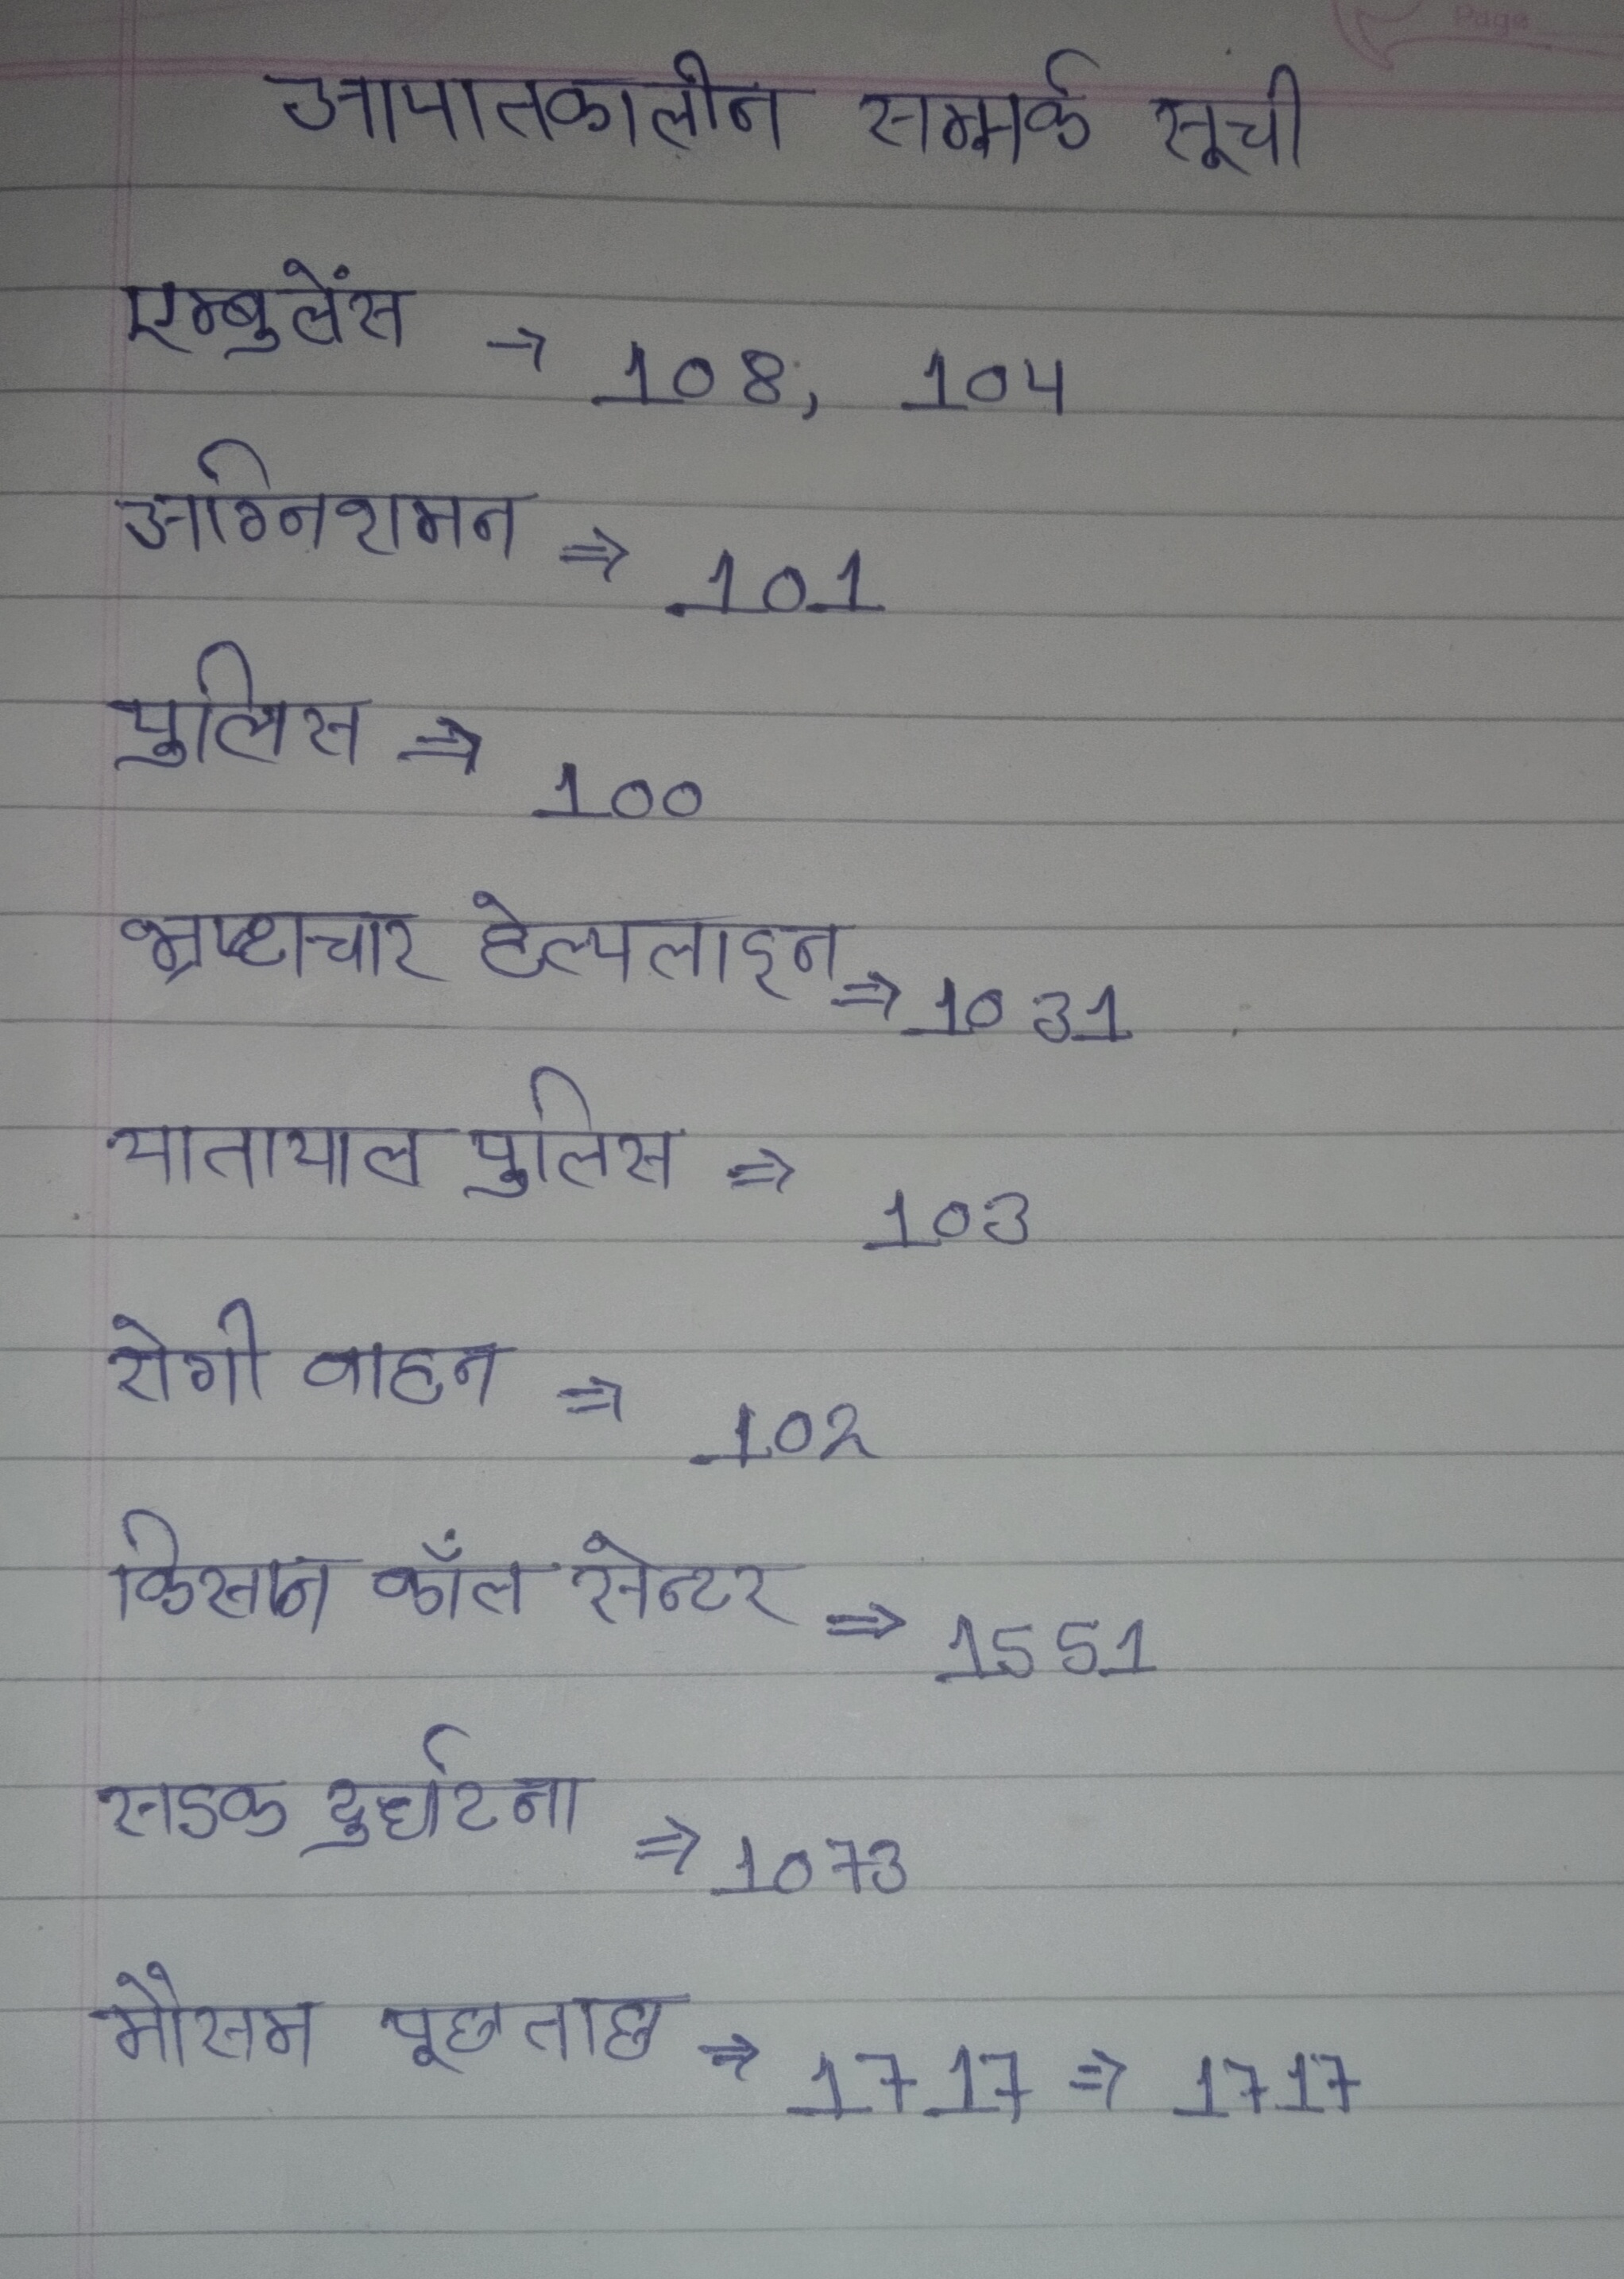 Page
आपातकालीन सम्पर्क सूची
एम्बुलेंस → 108, 104
अग्निशमन ⇒ 101
पुलिस ⇒ 100
भ्रष्टाचार हेल्पलाइन ⇒ 1031
यातायात पुलिस ⇒ 103
रोगी वाहन ⇒ 102
किसान कॉल सेन्टर ⇒ 1551
सडक दुर्घटना ⇒ 1073
मौसम पूछताछ ⇒ 1717 ⇒ 1717